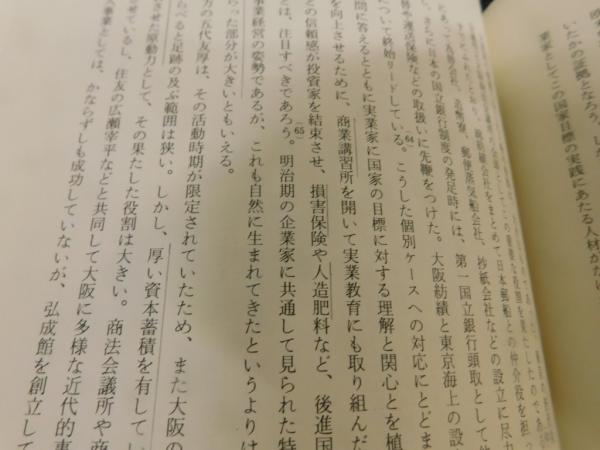 いたかの証拠となろう。
業家としてこの国家目標の実践にあたる人材がなけ
紡績会社をまとめて日本郵船との仲介役を担っ
造幣寮、郵便蒸気船会社、抄紙会社などの設立に尽力
さらに日本の国立銀行制度の発足時には、第一国立銀行頭取として
運送保険などの取扱いに先鞭をつけた。大阪紡績と東京海上の設
について終始リードしている。(64)こうした個別ケースへの対応にとどま
問に答えるとともに実業家に国家の目標に対する理解と関心とを植
を向上させるために、商業講習所を開いて実業教育にも取り組んだ
との信頼感が投資家を結束させ、損害保険や人造肥料など、後進国
とは、注目すべきであろう。(65)明治期の企業家に共通して見られた特
事業経営の姿勢であるが、これも自然に生まれてきたというよりは
らった部分が大きいともいえる。
方の五代友厚は、その活動時期が限定されていたため、また大阪の
らべると足跡の及ぶ範囲は狭い。しかし、厚い資本蓄積を有してい
させた原動力として、その果たした役割は大きい。商法会議所や商
せているし、住友の広瀬宰平などと共同して大阪に多様な近代的事
事業としては、かならずしも成功していないが、弘成館を創立して